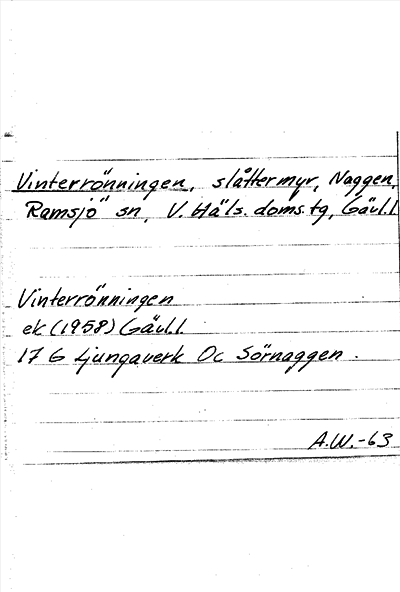 Vinterrönningen, slåttermyr, Naggen,
Ramsjö sn, V. Häls. doms.tg, Gävl.l
Vinterrönningen
ek (1958) Gävl.l.
17 G Ljungaverk Oc Sörnaggen.
A.W.-63